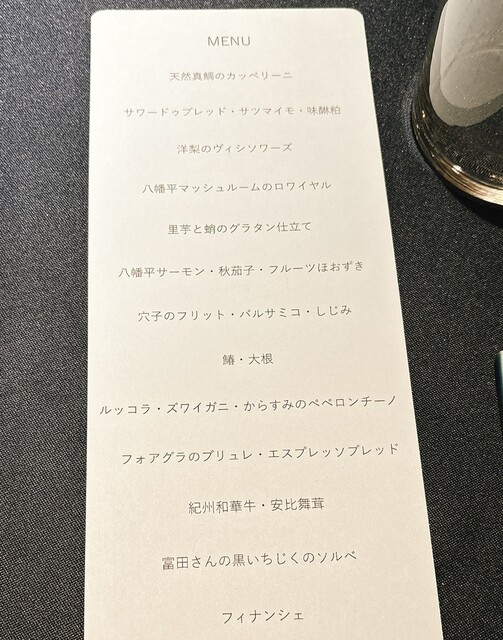 MENU
天然真鯛のカッペリーニ
サワードゥブレッド・サツマイモ・味醂粕
洋梨のヴィシソワーズ
八幡平マッシュルームのロワイヤル
里芋と蛸のグラタン仕立て
八幡平サーモン・秋茄子・フルーツほおずき
穴子のフリット・バルサミコ・しじみ
鰆・大根
ルッコラ・ズワイガニ・からすみのペペロンチーノ
フォアグラのブリュレ・エスプレッソブレッド
紀州和華牛・安比舞茸
富田さんの黒いちじくのソルベ
フィナンシェ